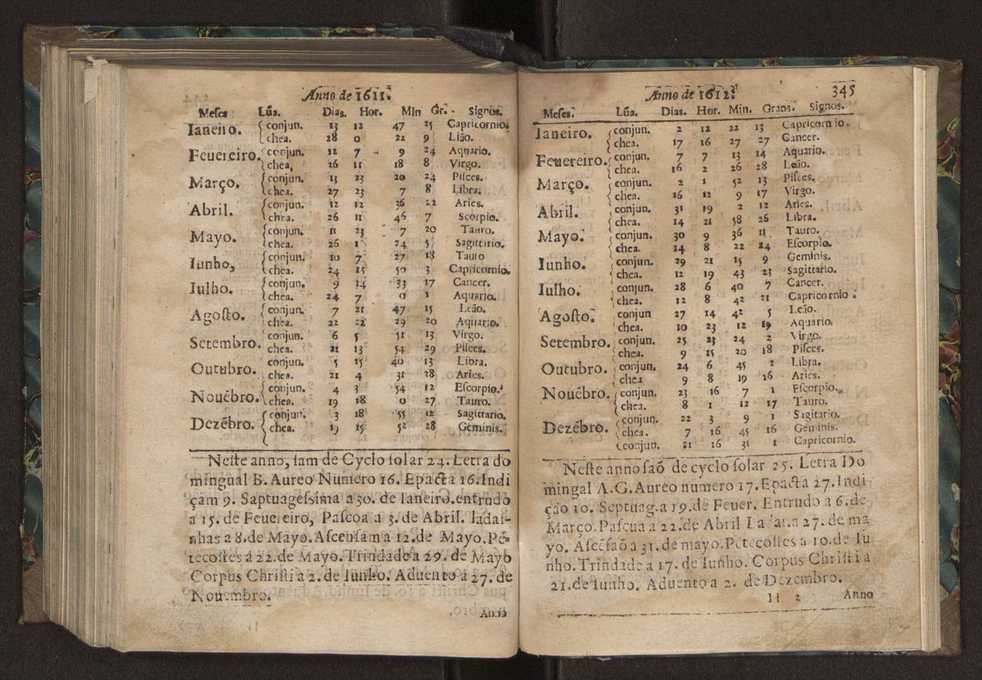 Anno de 1611.
Meses Lũa. Dias. Hor. Min Gr. Signos.
Ianeiro. conjun. 13 12 47 25 Capricornio.
chea. 28 0 21 9 Lião.
Feuereiro. conjun. 12 7 9 24 Aquario.
chea, 26 11 18 8 Virgo.
Março. conjun. 13 23 20 24 Pisces.
chea. 27 23 7 8 Libra.
Abril. conjun. 12 12 36 22 Aries.
chea. 26 11 46 7 Scorpio.
Mayo. conjun. 11 23 7 20 Tauro.
chea. 26 1 24 5 Sagittario.
Iunho, conjun. 10 7 27 18 Tauro
chea. 24 15 50 3 Capricornio.
Iulho. conjun. 9 14 33 17 Cancer.
chea. 24 7 0 1 Aquario.
Agosto. conjun. 7 21 47 15 Leão.
chea. 22 22 29 20 Aquario.
Setembro. conjun. 6 5 51 13 Virgo.
chea. 21 13 54 29 Pisces.
Outubro. conjun. 5 15 40 13 Libra.
chea. 21 4 31 28 Aries.
Nouẽbro. conjun. 4 3 54 12 Escorpio.
chea. 19 18 0 27 Tauro.
Dezẽbro. conjun. 3 18 55 12 Sagittario.
chea. 19 15 52 28 Geminis.
Neste anno, sam de Cyclo solar 24. Letra do
mingual B. Aureo Numero 16. Epacta 16. Indi
çam 9. Saptuagessima a 30. de Ianeiro. entrudo
a 15. de Feuereiro, Pascoa a 3. de Abril. ladai-
nhas a 8. de Mayo. Ascensam a 12. de Mayo. Pẽ-
tecostes a 22. de Mayo. Trindade a 29. de Mayo
Corpus Christi a 2. de Iunho. Aduento a 27. de
Nouembro.
Anno
345
Anno de 1612.
Meses. Lũa. Dias. Hor. Min. Graos. Signos.
Ianeiro. conjun. 2 12 22 13 Capricornio.
chea. 17 16 27 27 Cancer.
Feuereiro. conjun. 7 7 13 14 Aquario.
chea. 16 2 26 28 Leão.
Março. conjun. 2 1 52 13 Pisces.
chea. 16 12 9 17 Virgo.
Abril. conjun. 31 19 2 12 Aries.
chea. 14 21 58 26 Libra.
Mayo. conjun. 30 9 36 11 Tauro.
chea. 14 8 22 24 Escorpio.
Iunho. conjun. 29 21 15 9 Geminis.
chea. 12 19 43 23 Sagittario.
Iulho. conjun. 28 6 40 7 Cancer.
chea. 12 8 42 21 Capricornio.
Agosto. conjun 27 14 42 5 Leão.
chea. 10 23 12 19 Aquario.
Setembro. conjun. 25 23 24 2 Virgo.
chea. 9 15 20 18 Pisces.
Outubro. conjun. 24 6 45 2 Libra.
chea 9 8 19 16 Aries.
Nouẽbro. conjun. 23 16 7 1 Escorpio.
chea. 8 1 12 17 Tauro.
Dezẽbro. conjun. 22 3 9 1 Sagitario.
chea. 7 16 45 16 Geminis.
conjun. 21 16 31 1 Capricornio.
Neste anno saõ de cyclo solar 25. Letra Do
mingal A.G. Aureo numero 17. Epacta 27. Indi
ção 10. Septuag. a 19. de Feuer. Entrudo a 6. de
Março. Pascua a 22. de Abril Ladai. a 27. de ma
yo. Ascẽsaõ a 31. de mayo. Pẽtecostes a 10. de Iu
nho. Trindade a 17. de Iunho. Corpus Christi a
21. de Iunho. Aduento a 2. de Dezembro.
Anno